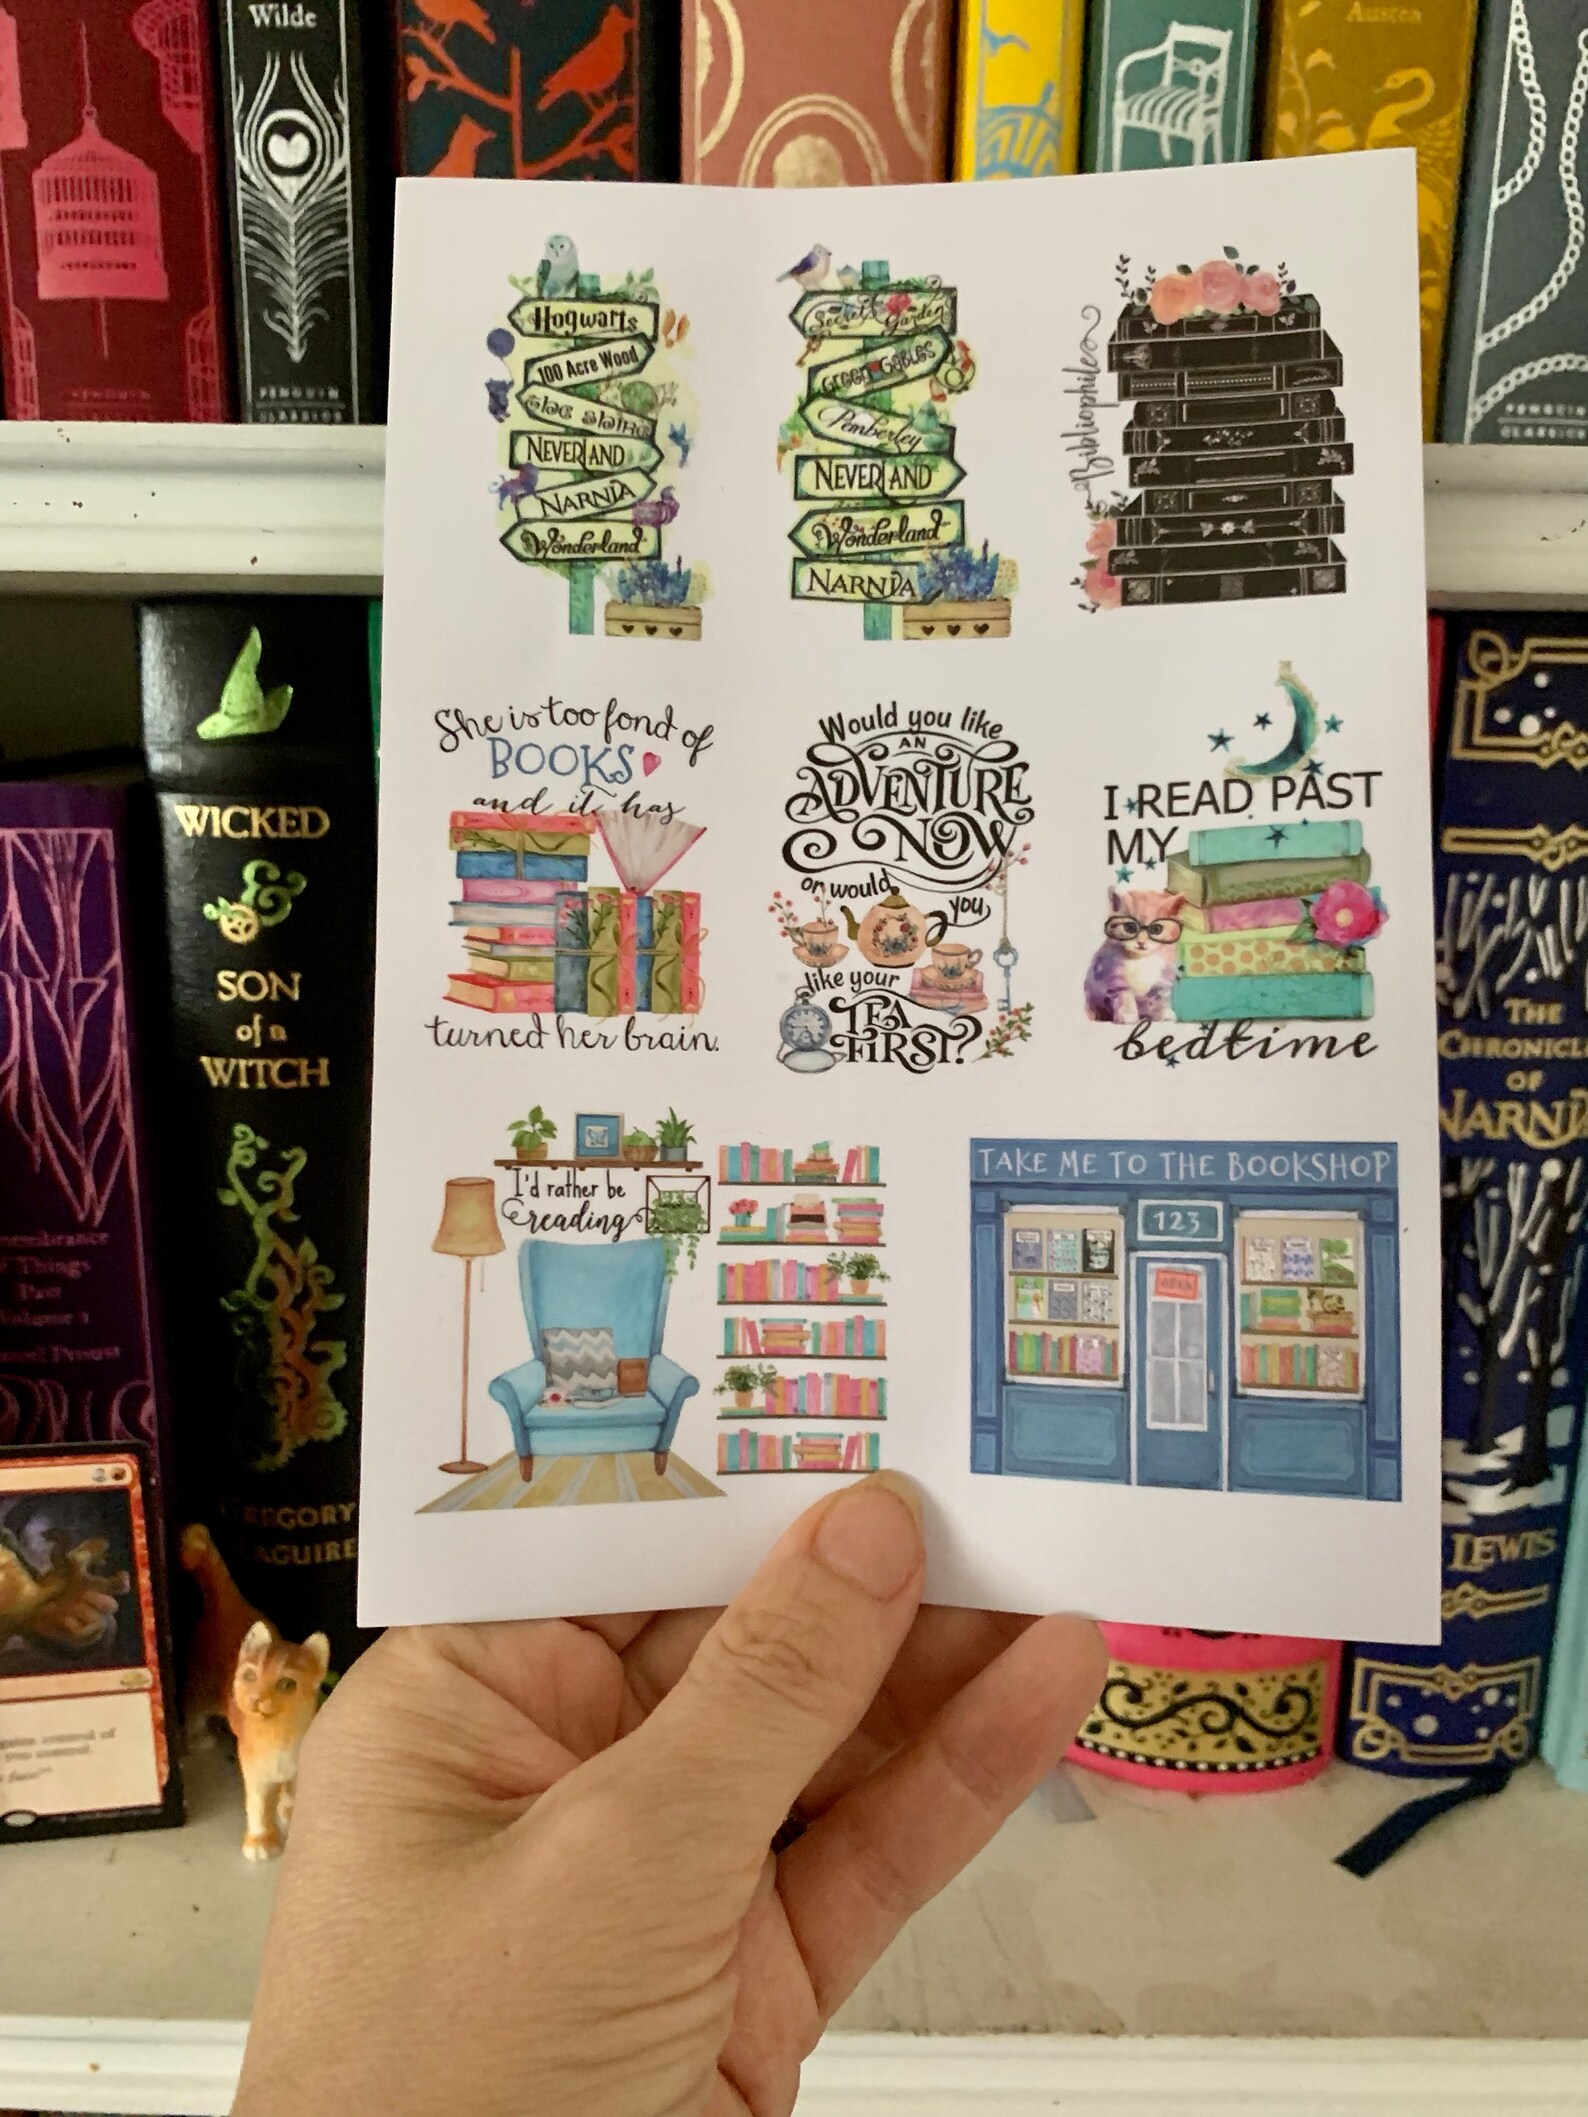 Wilde
Austen
PENGUIN
PENGUIN
CLASSICS
PENGUIN
CLASSICS
Hogwarts
100 Acre Wood
The Shire
NEVERLAND
NARNIA
Wonderland
Secret Garden
Green Gables
Pemberley
NEVERLAND
Wonderland
NARNIA
Bibliophile
She is too fond of
BOOKS
and it has
turned her brain.
Would you like
AN
ADVENTURE
NOW
or would
you,
like your
TEA
FIRST?
I READ PAST
MY
bedtime
I'd rather be
reading
TAKE ME TO THE BOOKSHOP
123
OPEN
WICKED
&
SON
of a
WITCH
GREGORY
MAGUIRE
THE
CHRONICL
OF
NARNIA
LEWIS
membrance
Things
Past
Volume 1
Proust
gains control of
you control.